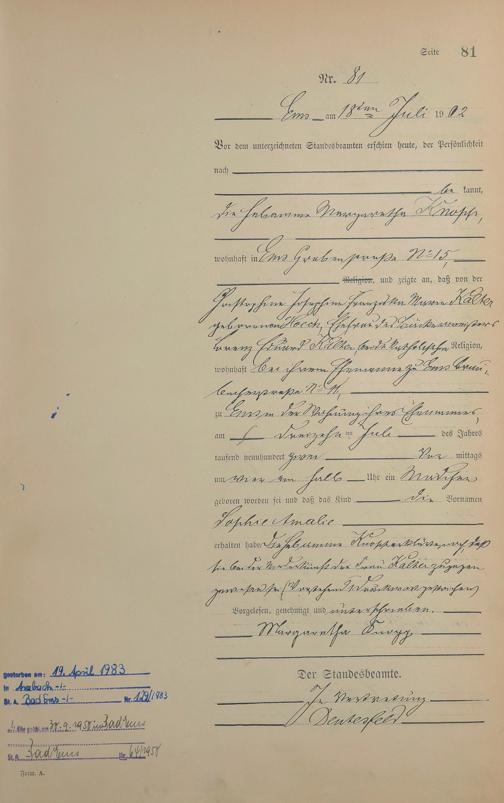 Seite 81
Nr. 81
Ems am 18ten Juli 1902
Vor dem unterzeichneten Standesbeamten erschien heute, der Persönlichkeit
nach
be kannt,
die Hebamme Margaretha Knopp,
wohnhaft in Ems Grabenstraße No 15,
Religion, und zeigte an, daß von der
Christophine Josephine Franziska Maria Kalter
geborenen Ehefrau des Bäckermeisters
Lorenz Eduard Kalter, beide katholischer Religion,
wohnhaft bei ihrem Ehemanne zu Ems
No 11,
zu Ems in der Wohnung ihres Ehemannes,
am dreizehn ten Juli des Jahres
tausend neunhundert zwei Vor mittags
um vier ein halb Uhr ein Mädchen
geboren worden sei und daß das Kind die Vornamen
Sophie Amalie
erhalten habe. Die Hebamme Knopp erklärte noch, daß
sie bei der Niederkunft der Frau Kalter zugegen
gewesen sei (Vorstehend Druckworte gestrichen)
Vorgelesen, genehmigt und unterschrieben.
Margaretha Knopp
Der Standesbeamte.
In Vertretung
gestorben am: 19. April 1983
in Arzbach -/-
St. A. Bad Ems -/- Nr. 129/1983
30.9.1958 in Bad Ems
St. A. Bad Ems Nr. 64/1958
Form. A.